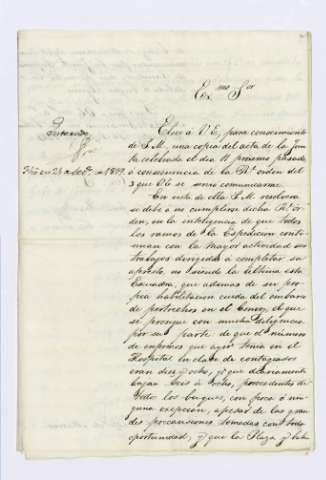 Exmo Sor
Elevo á V.E. para conocimiento
de S.M. una copia del acta de la Jun-
ta celebrada el dia 11 proximo pasado
á consecuencia de la Rl orden del
3 que V.E. se sirvió comunicarme.
En vista de ella S.M. resolverá
si debe ó no cumplirse dicha Rl or-
den, en la inteligencia de que todos
los ramos de la Espedicion conti-
nuan con la mayor actividad sus
trabajos dirigidos á completar su
apresto, no siendo la última esta
Escuadra, que ademas de su pro-
pia habilitacion cuida del embarco
de pertrechos en el
se prosigue con mucha diligencia
por su parte: de que el número
de enfermos que ayer tenia en el
Hospital en clase de contagiados
eran diez y ocho, y que diariamente
bajan seis á ocho, procedentes de
todos los buques, con poca ó nin-
guna excepcion, apesar de las gran-
des precauciones tomadas con toda
oportunidad; y que la Plaza y